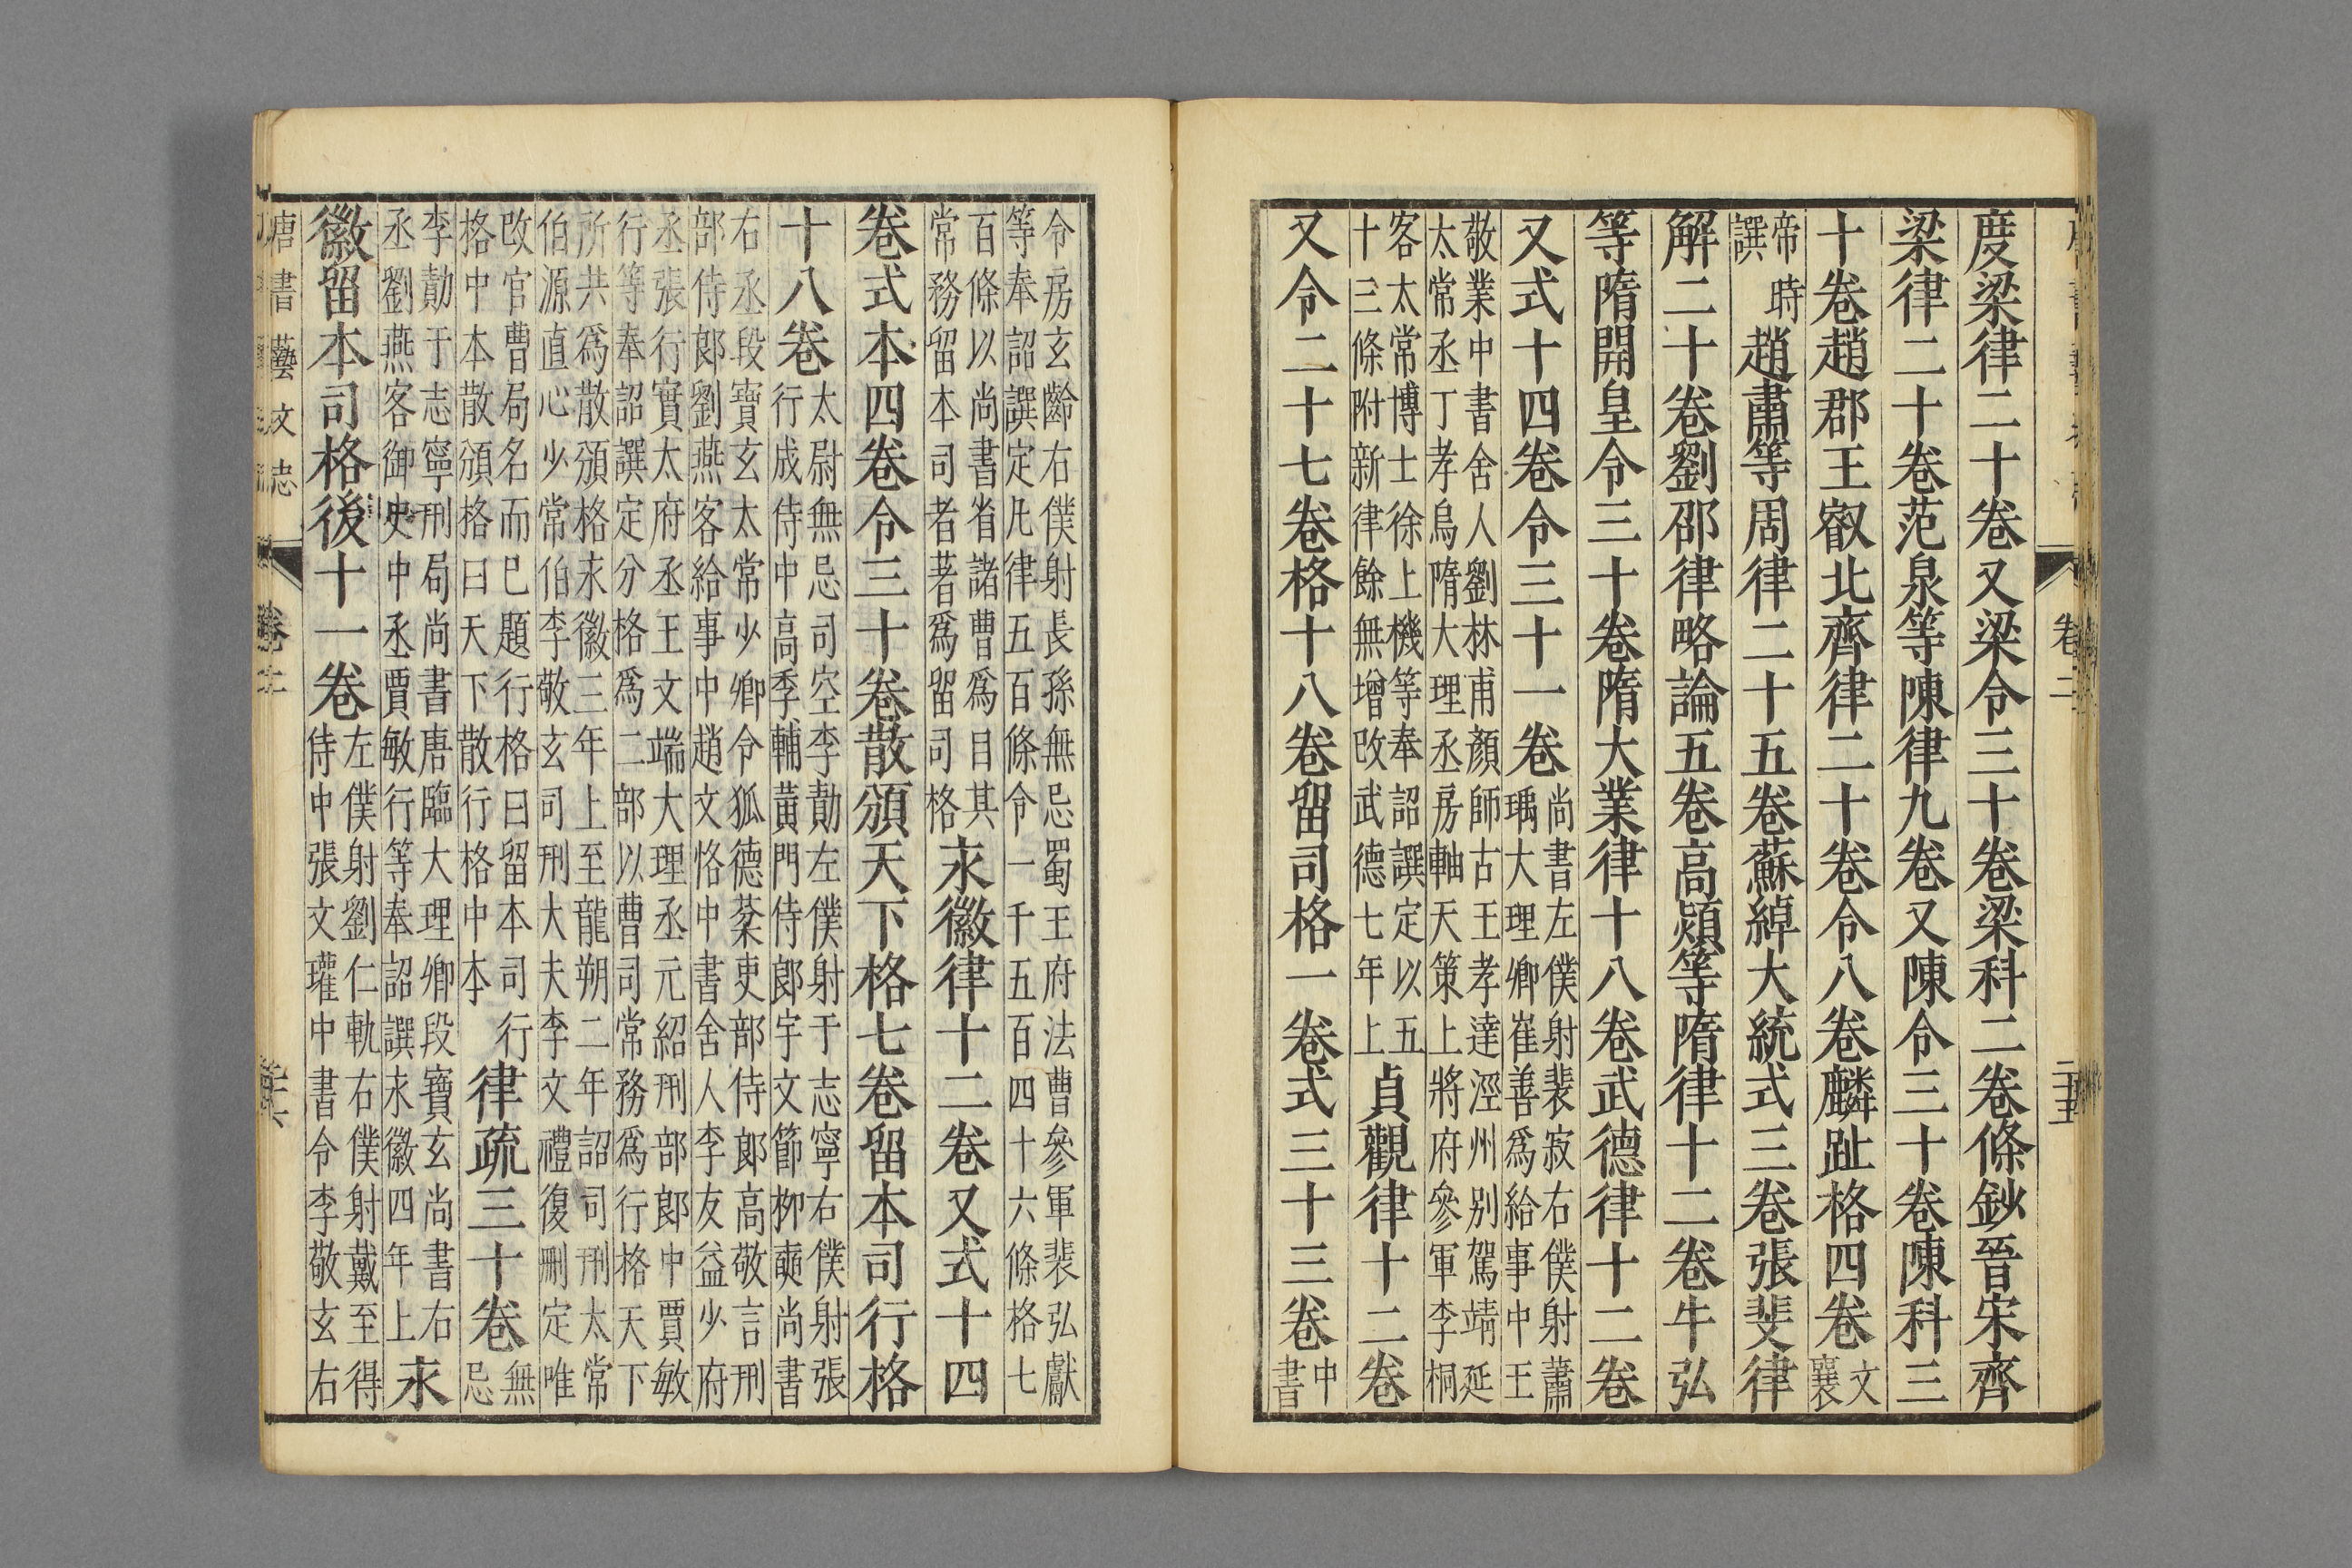 度梁律二十卷又梁令三十卷梁科二卷條鈔晉宋齊
梁律二十卷范泉等陳律九卷又陳令三十卷陳科三
十卷趙郡王叡北齊律二十卷令八卷麟趾格四卷文
襄
帝時
譔
趙肅等周律二十五卷蘇綽大統式三卷張斐律
解二十卷劉邵律略論五卷高熲等隋律十二卷牛弘
等隋開皇令三十卷隋大業律十八卷武德律十二卷
又式十四卷令三十一卷
尚書左僕射裴寂右僕射蕭
瑀大理卿崔善爲給事中王
敬業中書舍人劉林甫顏師古王孝達涇州别駕靖延
太常丞丁孝烏隋大理丞房軸天策上將府參軍李桐
客太常博士徐上機等奉詔譔定以五
十三條附新律餘無增改武德七年上
貞觀律十二卷
又令二十七卷格十八卷留司格一卷式三十三卷
中
書
卷二
二十五
令房玄齡右僕射長孫無忌蜀王府法曹參軍裴弘獻
等奉詔譔定凡律五百條令一千五百四十六條格七
百條以尚書省諸曹爲目其
常務留本司者著爲留司格
永徽律十二卷又式十四
卷式本四卷令三十卷散頒天下格七卷留本司行格
十八卷
太尉無忌司空李勣左僕射于志寧右僕射張
行成侍中高季輔黃門侍郎宇文節柳奭尚書
右丞段寶玄太常少卿令狐德棻吏部侍郎高敬言刑
部侍郎劉燕客給事中趙文恪中書舍人李友益少府
丞張行實太府丞王文端大理丞元紹刑部郎中賈敏
行等奉詔譔定分格爲二部以曹司常務爲行格天下
所共爲散頒格永徽三年上至龍朔二年詔司刑太常
伯源直心少常伯李敬玄司刑大夫李文禮復刪定唯
改官曹局名而已題行格曰留本司行
格中本散頒格曰天下散行格中本
律疏三十卷
無
忌
李勣于志寧刑局尚書唐臨大理卿段寶玄尚書右
丞劉燕客御史中丞賈敏行等奉詔譔永徽四年上
永
徽留本司格後十一卷
左僕射劉仁軌右僕射戴至得
侍中張文瓘中書令李敬玄右
唐書藝文志
卷二